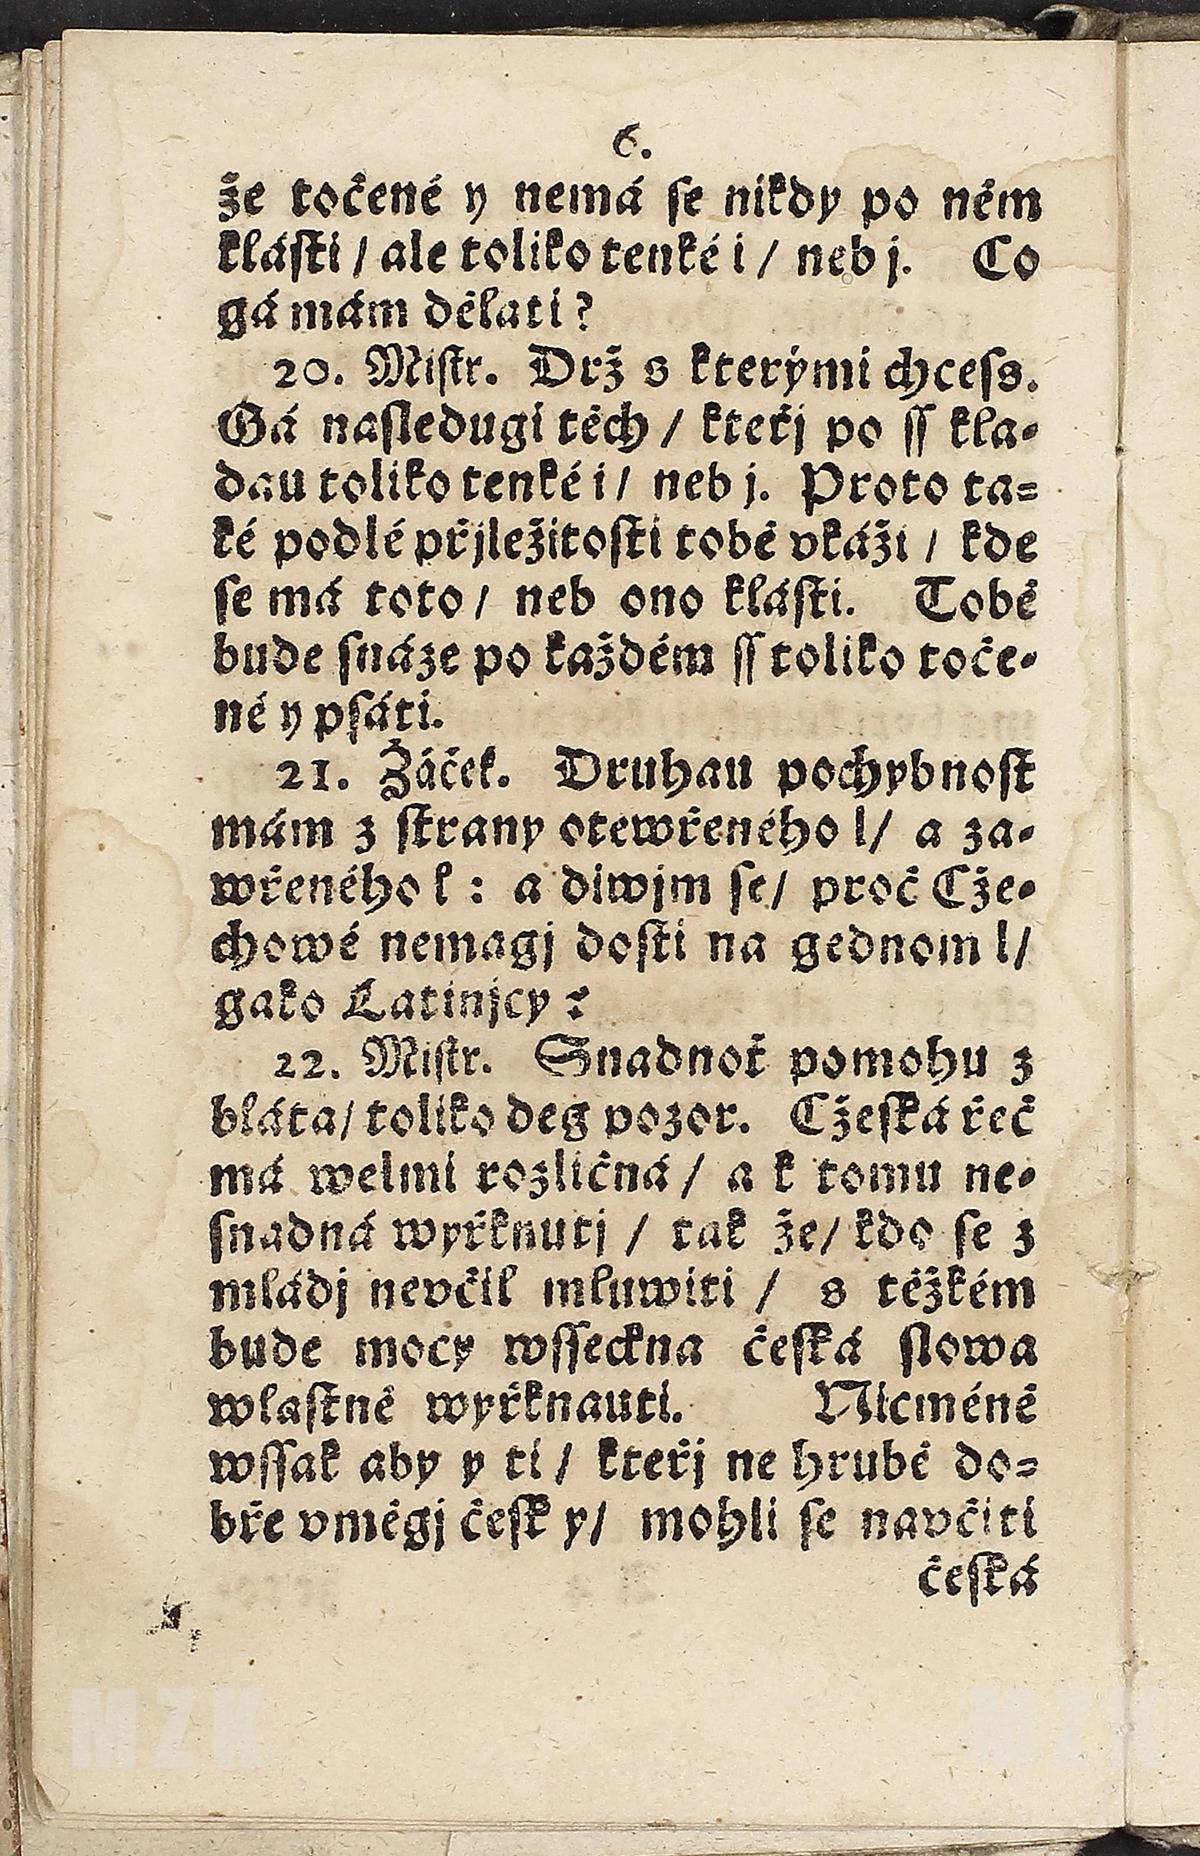 6.
že točené y nemá ſe nikdy po něm
kláſti / ale toliko tenké i / neb j. Co
gá mám dělati?
20. Miſtr. Drž s kterými chceſs.
Gá naſledugi těch / kteřj po ſſ kla-
dau toliko tenké i / neb j. Proto ta=
ké podlé přjležitoſti tobě vkáži / kde
ſe má toto / neb ono kláſti. Tobě
bude ſnáze po každém ſſ toliko toče-
né y pſáti.
21. Žáček. Druhau pochybnoſt
mám z ſtrany otewřeného l / a za-
wřeného ł : a diwjm ſe / proč Cže-
chowé nemagj doſti na gednom l /
gako Latinjcy?
22. Miſtr. Snadnoť pomohu z
bláta / toliko deg pozor. Cžeſká řeč
má welmi rozličná / a k tomu ne-
ſnadná wyřknutj / tak že / kdo ſe z
mládj nevčil mluwiti / s těžkém
bude mocy wſſeckna čeſká ſlowa
wlaſtně wyřknauti. Nicméně
wſſak aby y ti / kteřj ne hrubě do=
bře vměgj čeſky / mohli ſe navčiti
čeſká
MZK
MZK